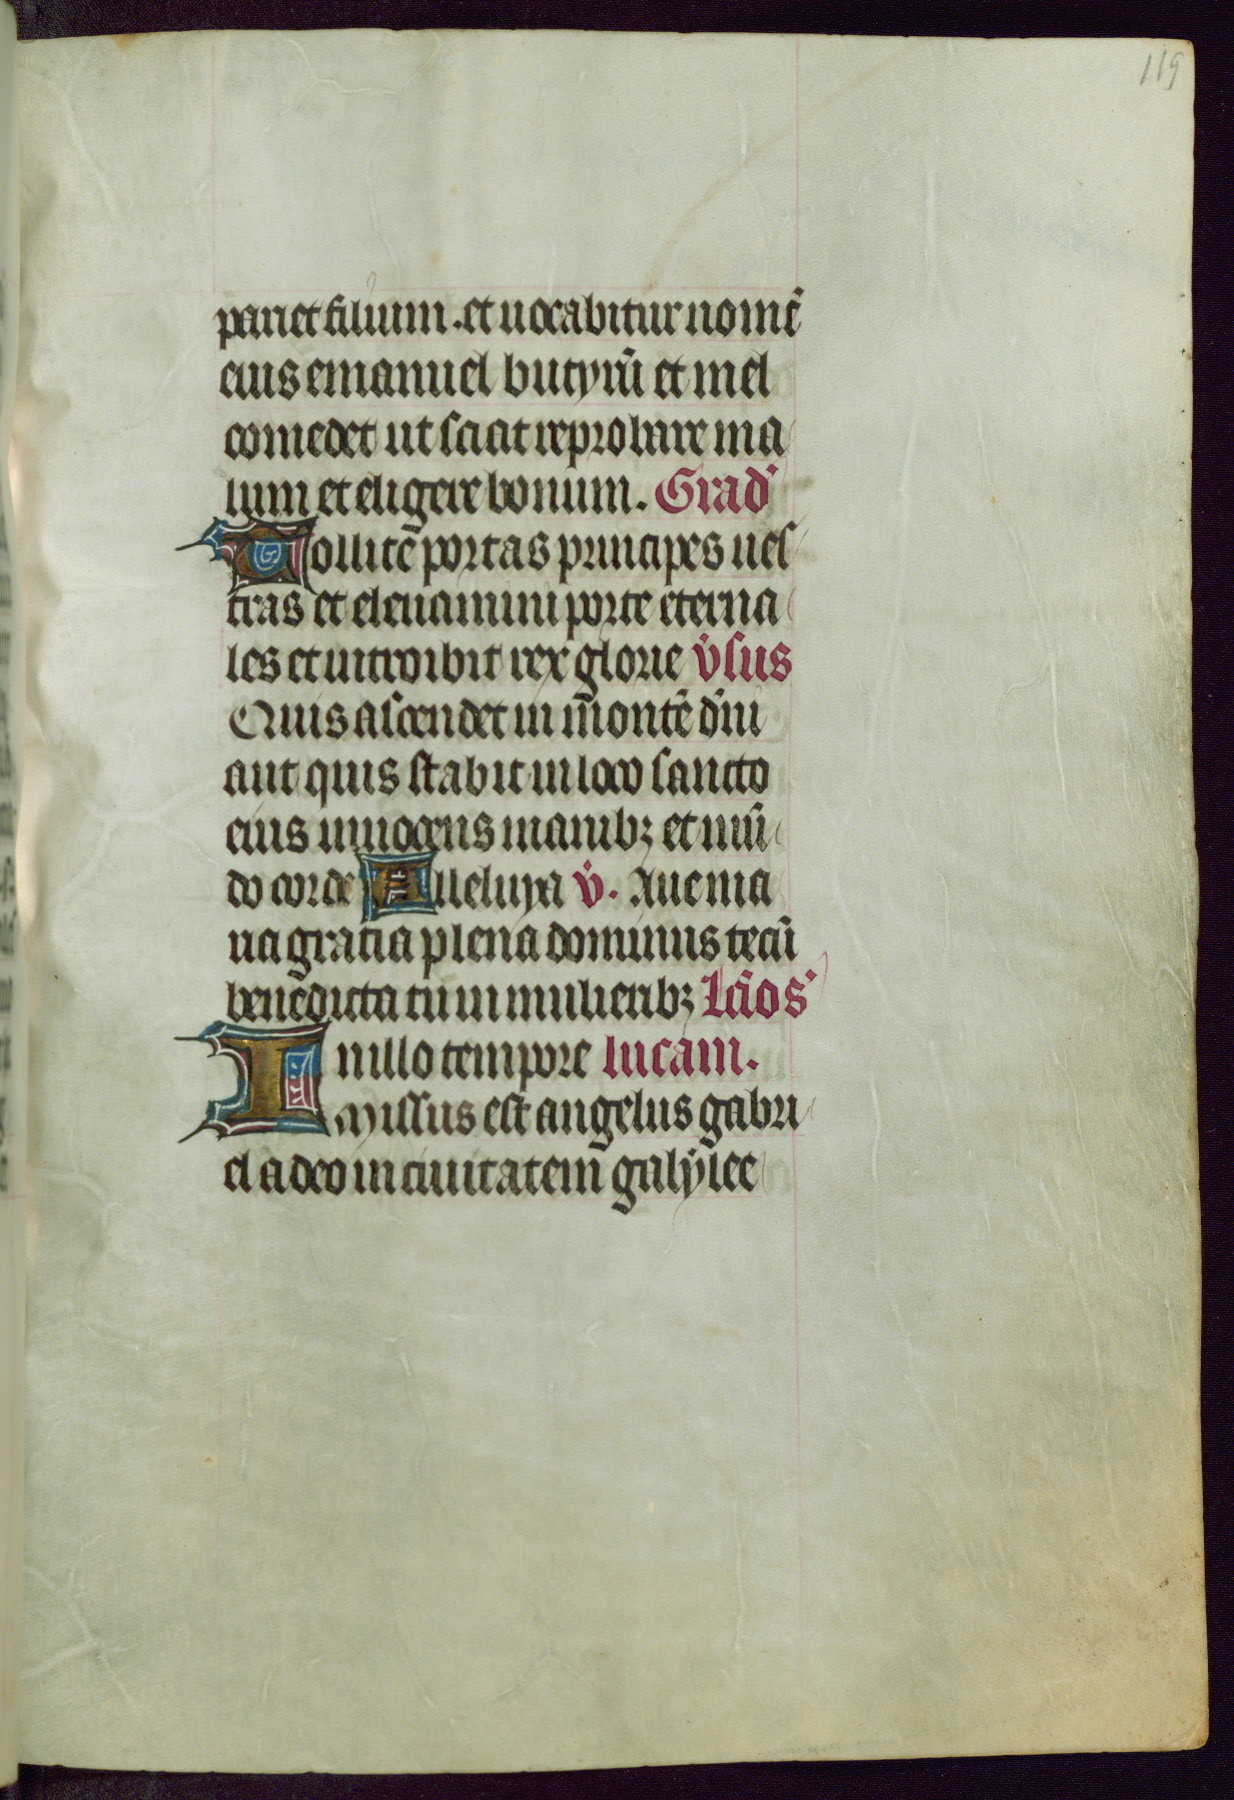 119
pariet filium. et uocabitur nomē
eius emanuel butyrū et mel
comedet ut sciat reprobare ma
lum et eligere bonum. Grad'
Tollite portas principes ues
tras et eleuamini porte eterna
les et introibit rex glorie v̇sus
Quis ascendet in montē dn̄i
aut quis stabit in loco sancto
eius innocens manibꝫ et mū
do corde Alleluya v̇. Aue ma
ria gratia plena dominus tecū
benedicta tu in mulieribꝫ
In illo tempore lucam.
Missus est angelus gabri
el a deo in ciuitatem galylee